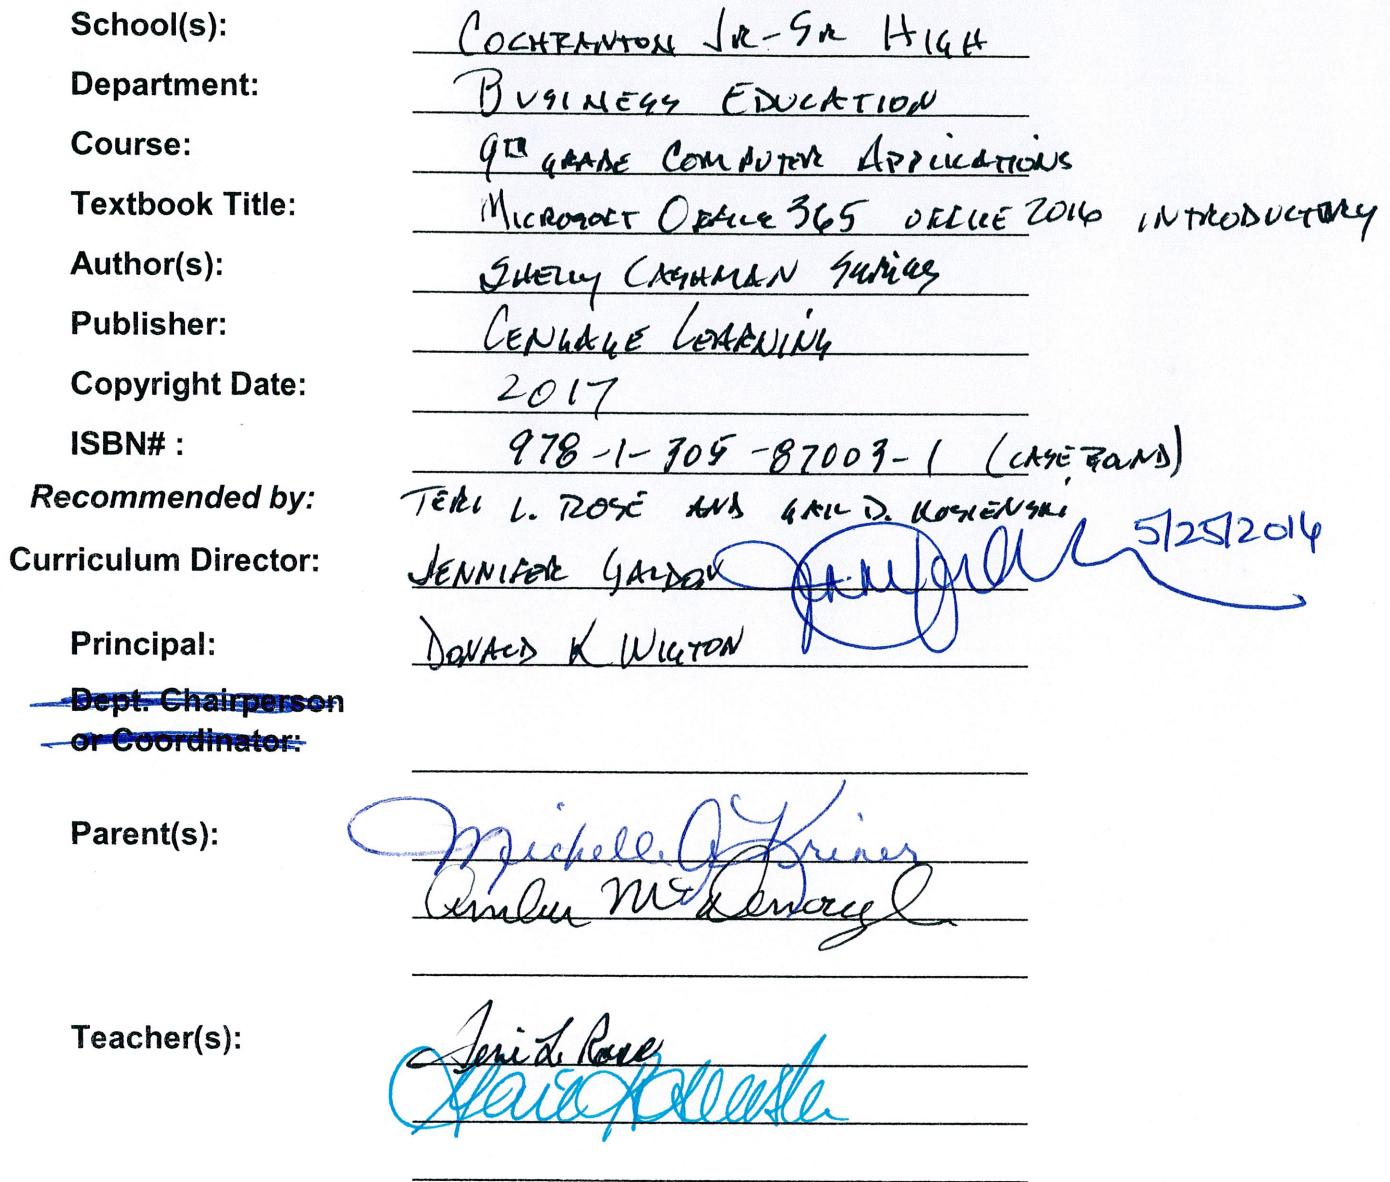 School(s): COCHRANTON JR-SR HIGH
Department: BUSINESS EDUCATION
Course: 9TH GRADE COMPUTER APPLICATIONS
Textbook Title: MICROSOFT OFFICE 365 OFFICE 2016 INTRODUCTORY
Author(s): SHELLY CASHMAN SERIES
Publisher: CENGAGE LEARNING
Copyright Date: 2017
ISBN# : 978-1-305-87003-1 (CASE BOUND)
Recommended by: TERI L. ROSE AND GAIL D. KOSIENSKI
Curriculum Director: JENNIFER GALDON 5/25/2016
Principal: DONALD K WIGTON
Dept. Chairperson
or Coordinator:
Parent(s): Michelle J Kriner
Amber
Teacher(s): Teri L Rose